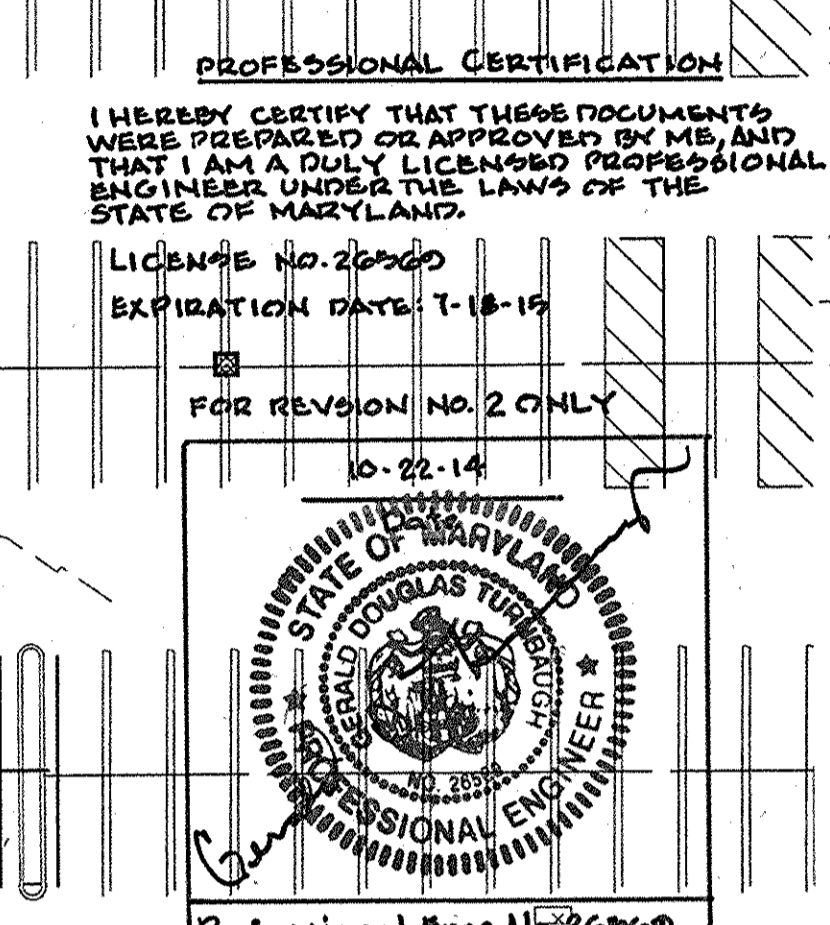 PROFESSIONAL CERTIFICATION
I HEREBY CERTIFY THAT THESE DOCUMENTS
WERE PREPARED OR APPROVED BY ME, AND
THAT I AM A DULY LICENSED PROFESSIONAL
ENGINEER UNDER THE LAWS OF THE
STATE OF MARYLAND.
LICENSE NO. 26569
EXPIRATION DATE: 7-18-15
FOR REVSION NO. 2 ONLY
10-22-14
Date
STATE OF MARYLAND
GERALD DOUGLAS TURNBAUGH
NO. 26569
PROFESSIONAL ENGINEER